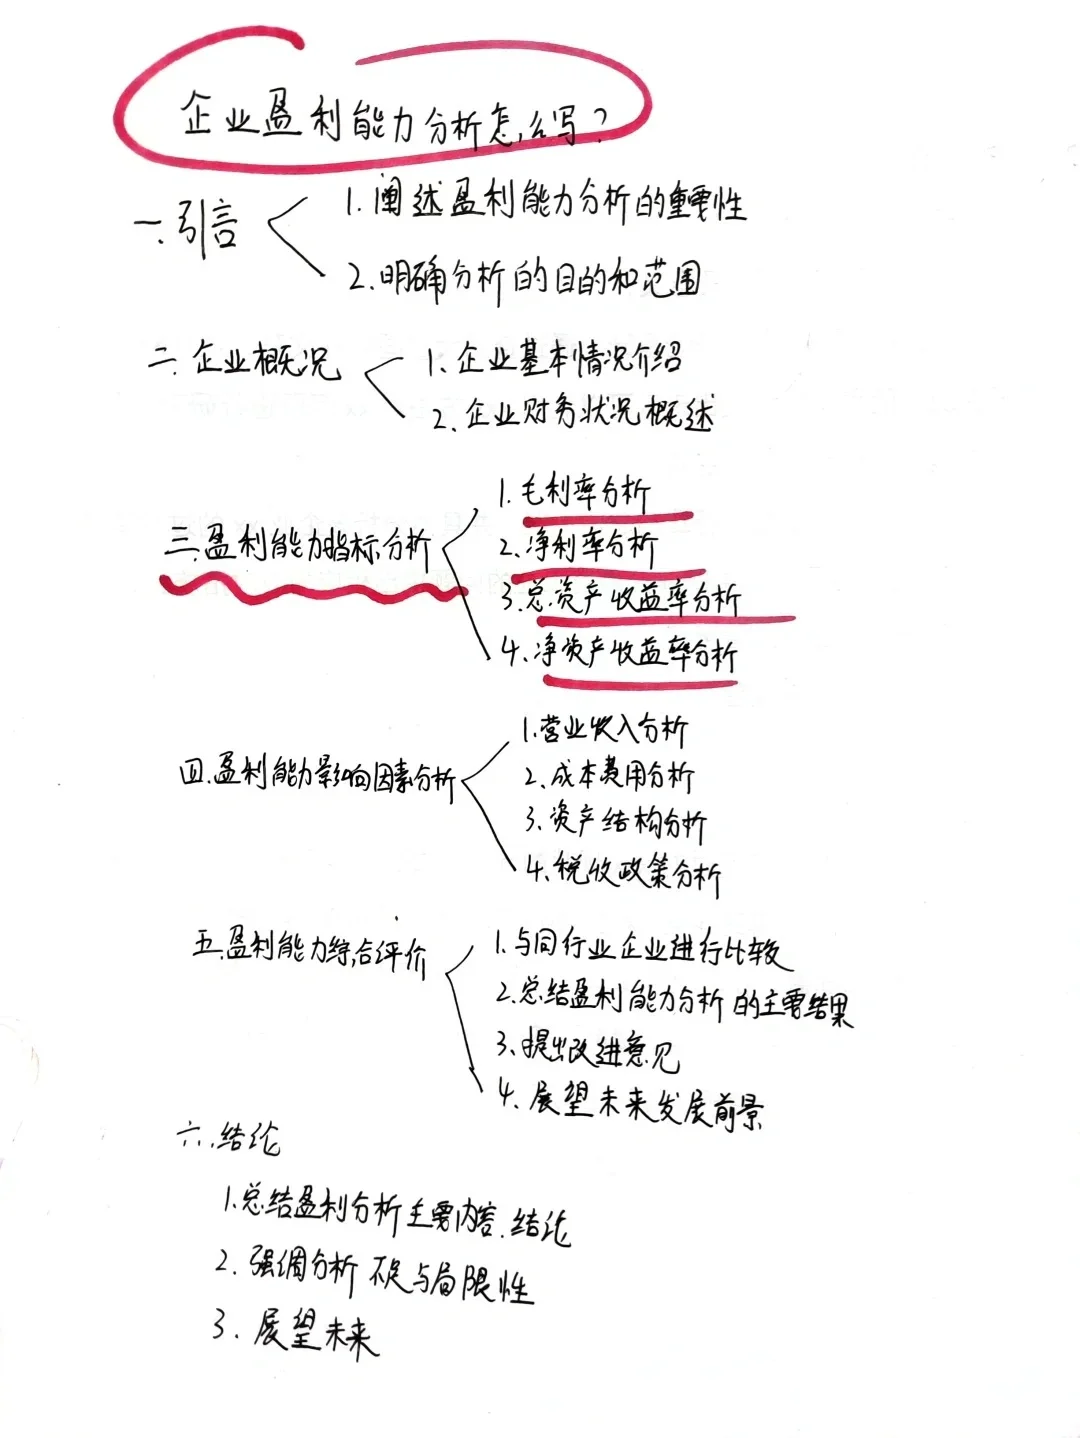 企业盈利能力分析怎么写?
一.引言
1.阐述盈利能力分析的重要性
2.明确分析的目的和范围
二.企业概况
1.企业基本情况介绍
2.企业财务状况概述
三.盈利能力指标分析
1.毛利率分析
2.净利率分析
3.总资产收益率分析
4.净资产收益率分析
四.盈利能力影响因素分析
1.营业收入分析
2.成本费用分析
3.资产结构分析
4.税收政策分析
五.盈利能力综合评价
1.与同行业企业进行比较
2.总结盈利能力分析的主要结果
3.提出改进意见
4.展望未来发展前景
六.结论
1.总结盈利分析主要内容.结论
2.强调分析不足与局限性
3.展望未来